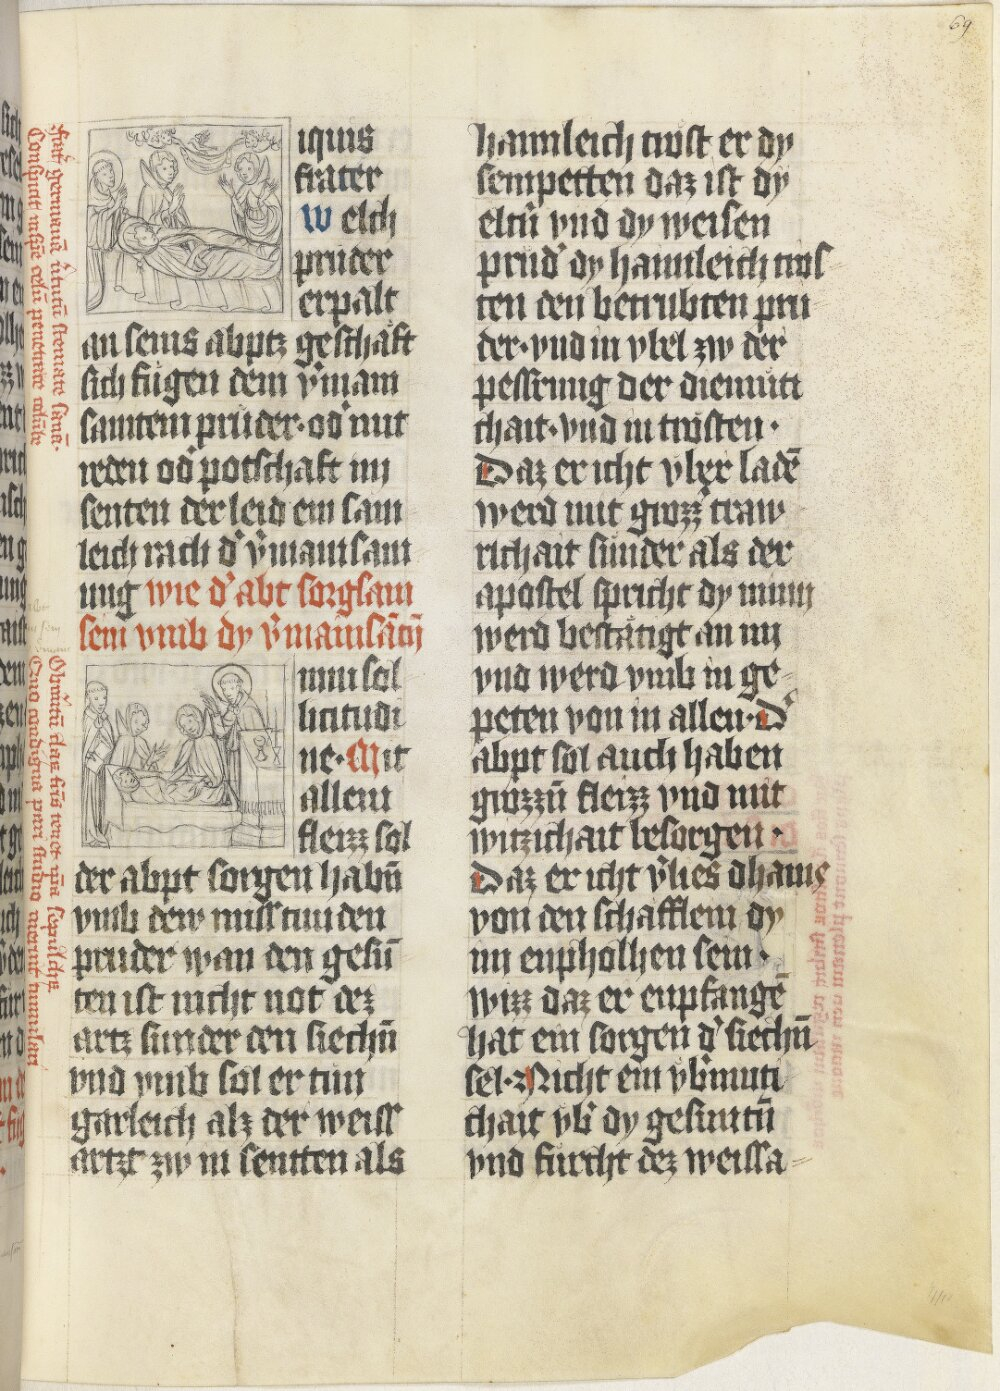 69
iquis
frater
Welch
pruder
erpalt
an seins abptz geschäft
sich fügen dem v̓main
samtem pruder · od̓ mit
reden od̓ potschaft im
senten der leid ein sam
leich rach d̓ v̓mainsam
ung wie d̓ abt sorgsam
sem vmb dy v̓mainsātū
mni sol
licitudi
ne · Mit
allem
fleizz sol
der abpt sorgen habn̄
vmb dew missetunden
pruder wan den gesū
ten ist nicht not dez
artz sunder den siechn̄
vnd vmb sol er tun
garleich alz der weiss
artzt zw in sentten als
haimleich trost er dy
sempetten daz ist dy
eltn̄ vnd dy weisen
prud̓ dy haimleich tros
ten den betrubten pru
der · vnd in vbel zw der
pessrung der diemuti
chait · vnd in trosten ·
Daz er icht vber ladē
werd mit grozz̓ traw
richait sunder als der
apostel spricht dy minn
werd bestätigt an im
vnd werd vmb in ge-
peten von in allen · D̓
abpt sol auch haben
grozzn̄ fleizz vnd mit
witzichait besorgen ·
Daz er icht v̓lies dhains
von den schafflein dy
im enpholhen sein ·
wizz daz er enpfangē
hat ein sorgen d̓ siechn̄
sel · Nicht ein vb̓muti
chait vb̓ dy gesuntn̄
vnd furcht dez weissa=